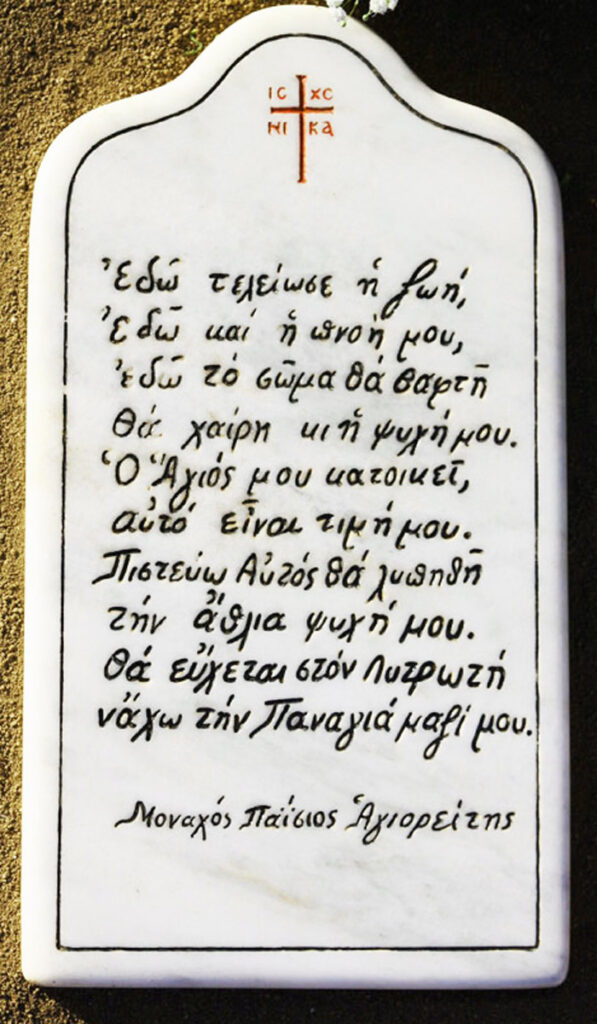 ΙC ΧC
ΝΙ ΚΑ
Ἐδῶ τελείωσε ἡ ζωή,
Ἐδῶ καί ἡ πνοή μου,
ἐδῶ τό σῶμα θά θαφτῆ
θά χαίρη κι ἡ ψυχή μου.
Ὁ Ἅγιός μου κατοικεῖ,
αὐτό εἶναι τιμή μου.
Πιστεύω Αὐτός θά λυπηθῆ
τήν ἄθλια ψυχή μου.
Θά εὔχεται στόν Λυτρωτή
νἄχω τήν Παναγιά μαζί μου.
Μοναχός Παΐσιος Ἁγιορείτης